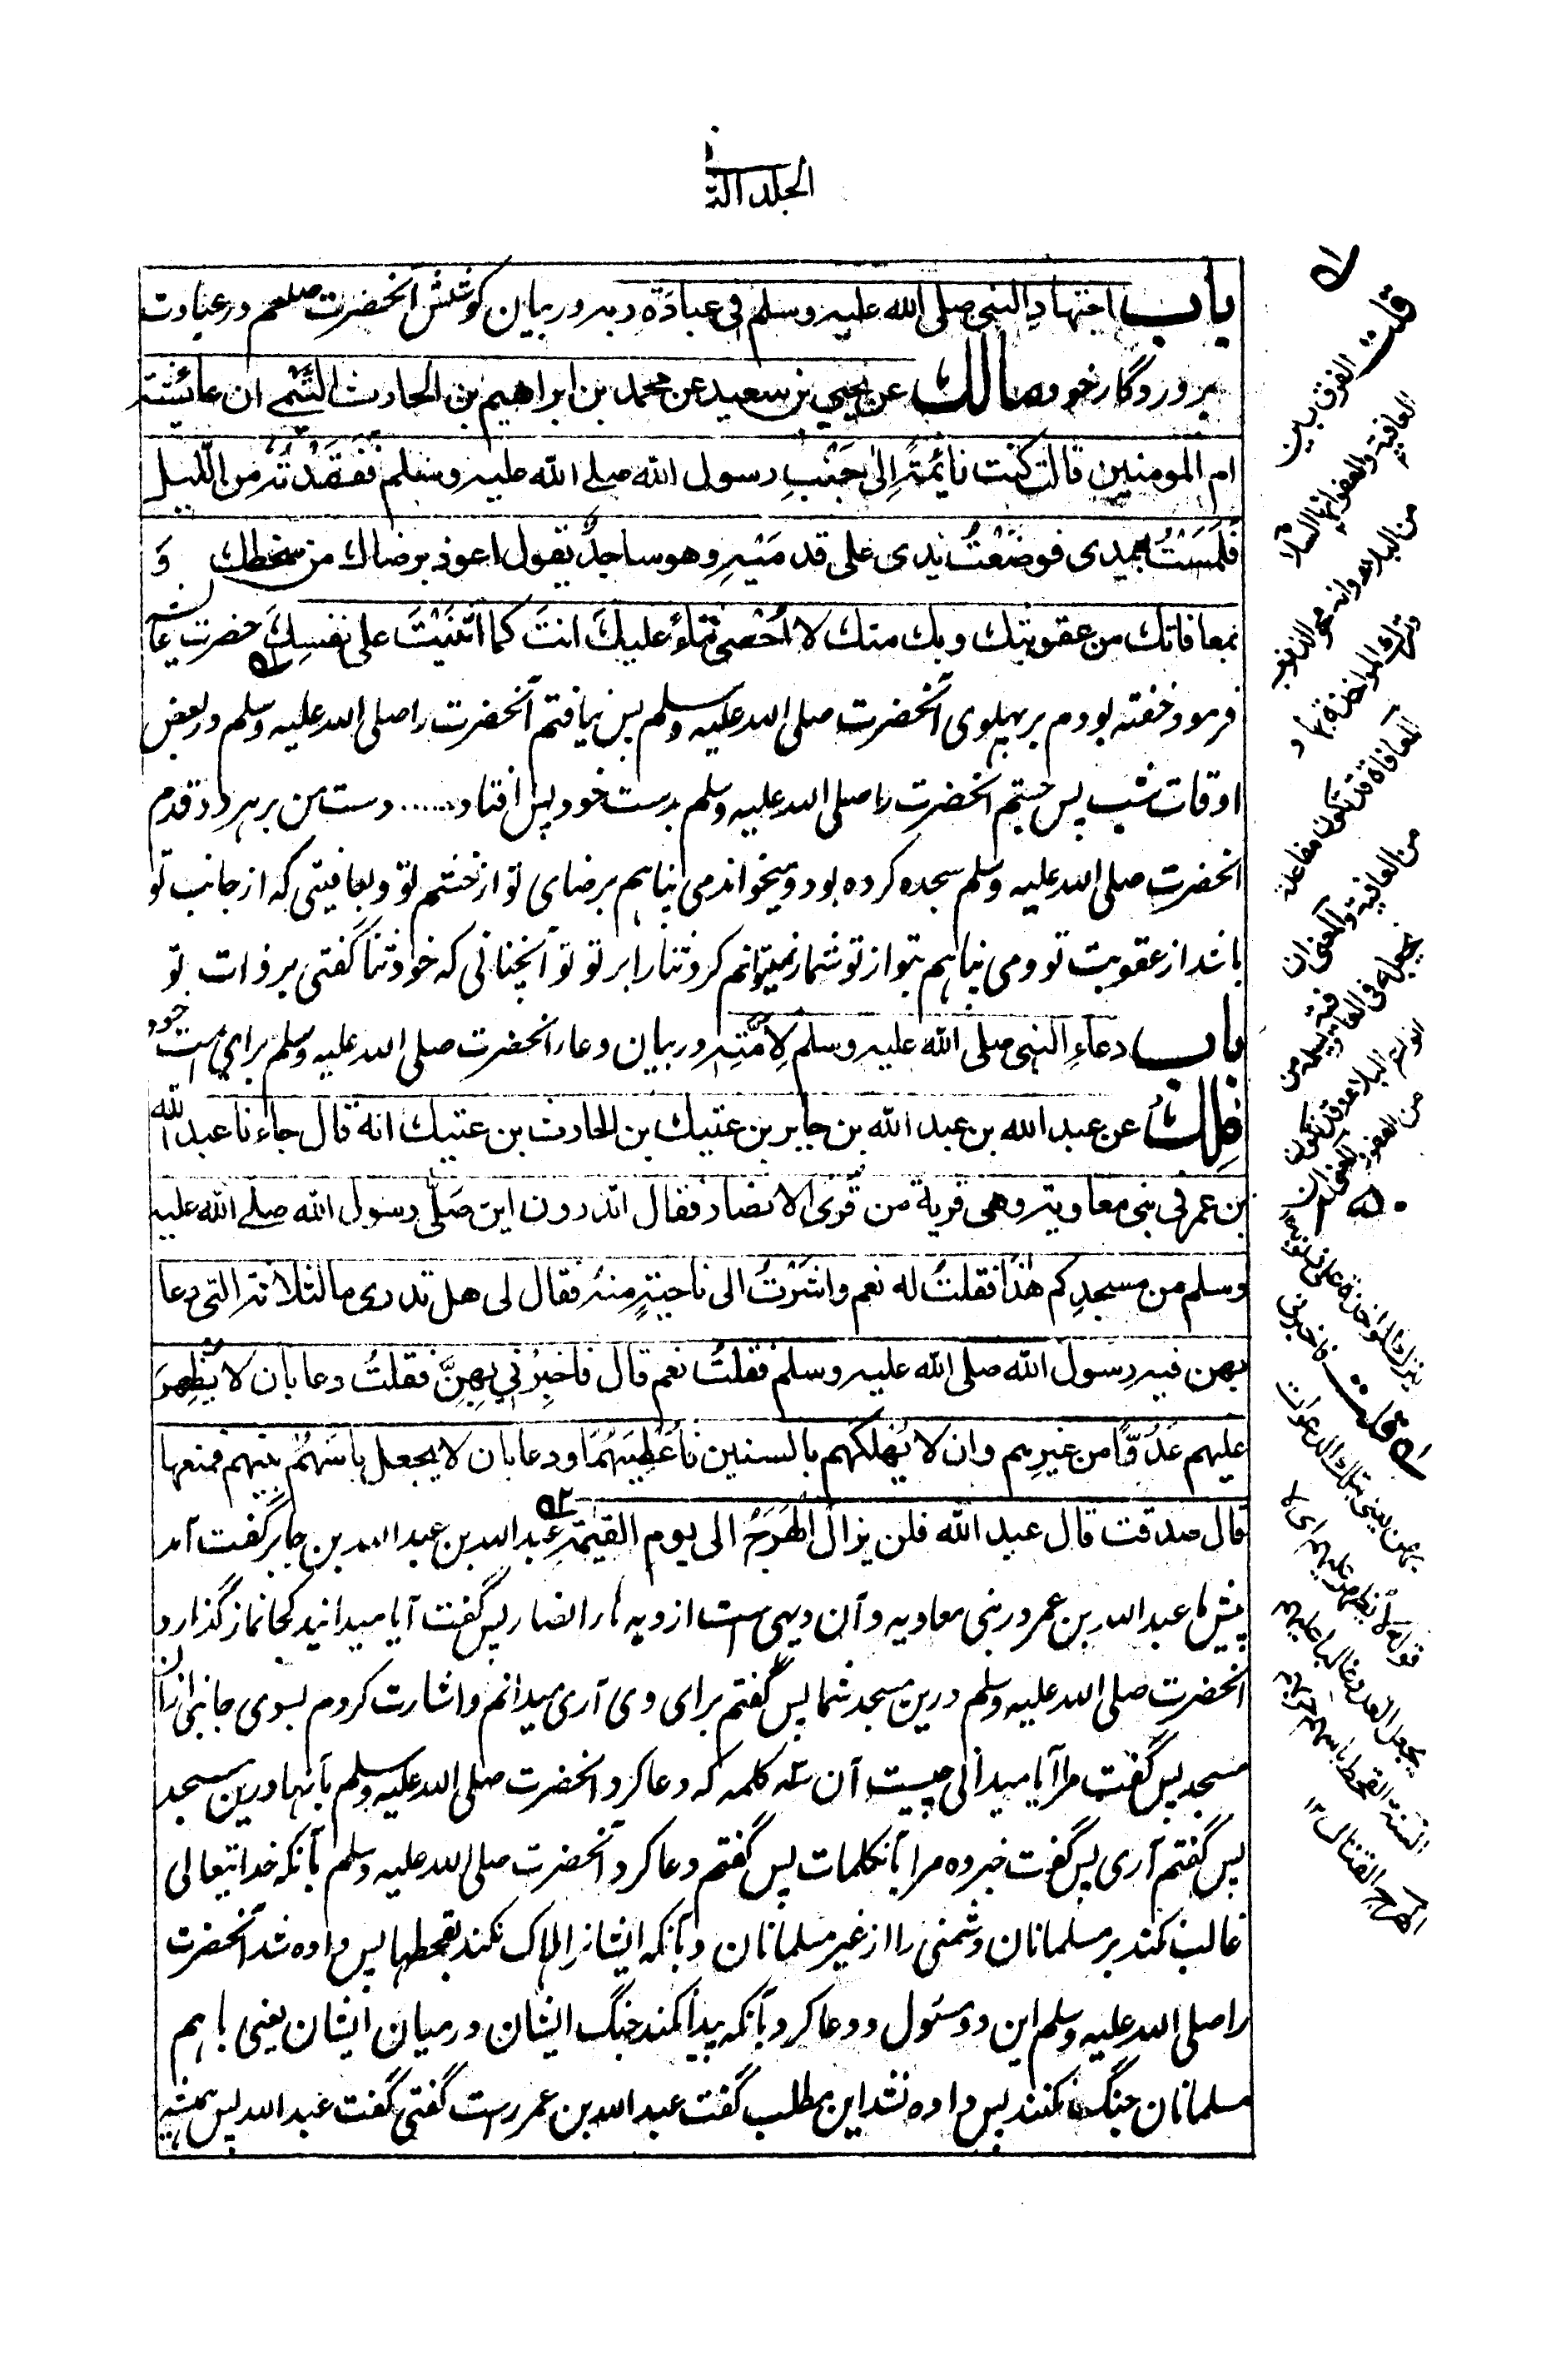 الجلد الثانی
باب اجتهادِ النبی صلی الله علیہ وسلم فی عبادَة ربہ در بیان کوشش آنحضرت صلعم در عبادت
پروردگار خود مالك عن یحیی بن سعید عن محمد بن ابراهیم بن الحارث التَّیمی ان عائشة
ام المومنین قالت کنت نائمةً اِلیٰ جَنْبِ رسول الله صلے الله علیہ وسلم فَفَقَدْتُہ من اللّیل
فَلَمَسْتُہ بیدی فوضَعْتُ یدی علی قدمَیْہِ وهو ساجدٌ یقول اعوذ برضاك من سخطك وَ
بمعافاتك من عقوبتك وبك منك لا اُحْصی ثناءً علیكَ انتَ کما اثنَیْتَ علی نفسِكَ حضرت عائشه
فرمود خفته بودم بر پهلوی آنحضرت صلی الله علیه وسلم پس نیافتم آنحضرت را صلی الله علیه وسلم در بعض
اوقات شب پس جستم آنحضرت را صلی الله علیه وسلم بدست خود پس افتاد...... دست من بر هر دو قدم
آنحضرت صلی الله علیه وسلم سجده کرده بود و میخواند می پناهم برضای تو از خشم تو و بعافیتی که از جانب تو
باشد از عقوبت تو و می پناهم بتو از تو شمار نمیتوانم کرد ثنا را بر تو تو آنچنانی که خود ثنا گفتی بر ذات تو
باب دعاءِ النبی صلی الله علیہ وسلم لِاُمَّتِہٖ در بیان دعاء آنحضرت صلی الله علیه وسلم برای امت خود
مالك عن عبد الله بن عبد الله بن جابر بن عتیك بن الحارث بن عتیك انه قال جاءنا عبد الله
بن عمر فی بنی معاویة وهی قریة من قُری الانصار فقال اتدرون این صَلّی رسول الله صلے الله علیہ
وسلم من مسجدِکم هٰذا فقلتُ له نعم واشَرْتُ الی ناحیةٍ منہ فقال لی هل تدری ما الثلاثة التی دعا
بهن فیہ رسول الله صلی الله علیہ وسلم فقلتُ نعم قال فاخبِرْنی بِهِنَّ فقلتُ دعا بان لا یُظهِرَ
علیهم عَدُوًّا من غیرهم وان لا یُهلکهم بالسنین فاُعْطِیَهُمَا ودعا بان لا یجعل باسَهُمْ بینهم فمنعها
قال صدقت قال عبد الله فلن یزال الهَرَجُ الی یوم القیٰمةِ عبدالله بن عبدالله بن جابر گفت آمد
پیش ما عبدالله بن عمر در بنی معاویه و آن دیهی است از دیه ها ر انصار پس گفت آیا میدانید کجا نماز گذارد
آنحضرت صلی الله علیه وسلم درین مسجد شما پس گفتم برای وی آری میدانم و اشارت کردم بسوی جانبی ازان
مسجد پس گفت مرا آیا میدانی چیست آن سه کلمه که دعا کرد آنحضرت صلی الله علیه وسلم بآنها درین مسجد
پس گفتم آری پس گفت خبر ده مرا بآنکلمات پس گفتم دعا کرد آنحضرت صلی الله علیه وسلم بآنکه خدایتعالی
غالب نکند بر مسلمانان دشمنی را از غیر مسلمانان و بآنکه ایشانرا هلاک نکند بقحطها پس داده شد آنحضرت
را صلی الله علیه وسلم این دو مسئول و دعا کرد بآنکه پیدا نکند جنگ ایشان درمیان ایشان یعنی باهم
مسلمانان جنگ نکنند پس داده نشد این مطلب گفت عبدالله بن عمر راست گفتی گفت عبدالله پس همیشه
قلت الفرق بین
العافیة والعفو
من البلاء وانه محو الذنوب
وترك المواخذة بها و
المعافاة قد تکون مفاعلة
من العافیة والمعنی ان
قلت فاخبرنی
بهن یعنی بتلك الدعوات
قوله لا یظهر علیهم ای لا
یجعل العدو غالبا علیهم
السنة القحط باسهم حربهم
الهرج القتال ١٢